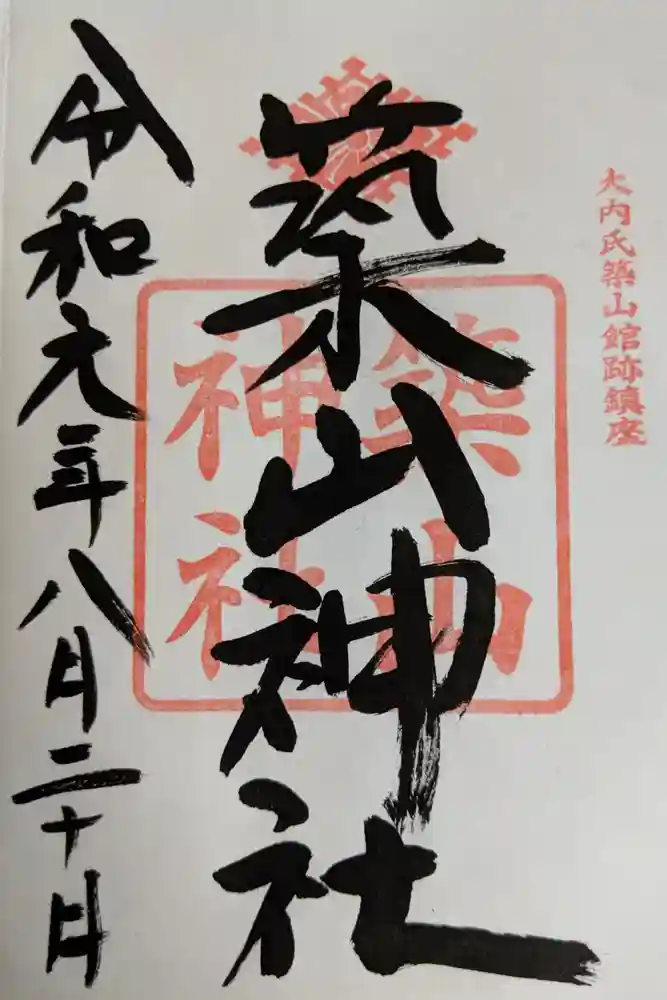 大内氏築山館跡鎮座
築山神社
築山
神社
令和元年八月二十日